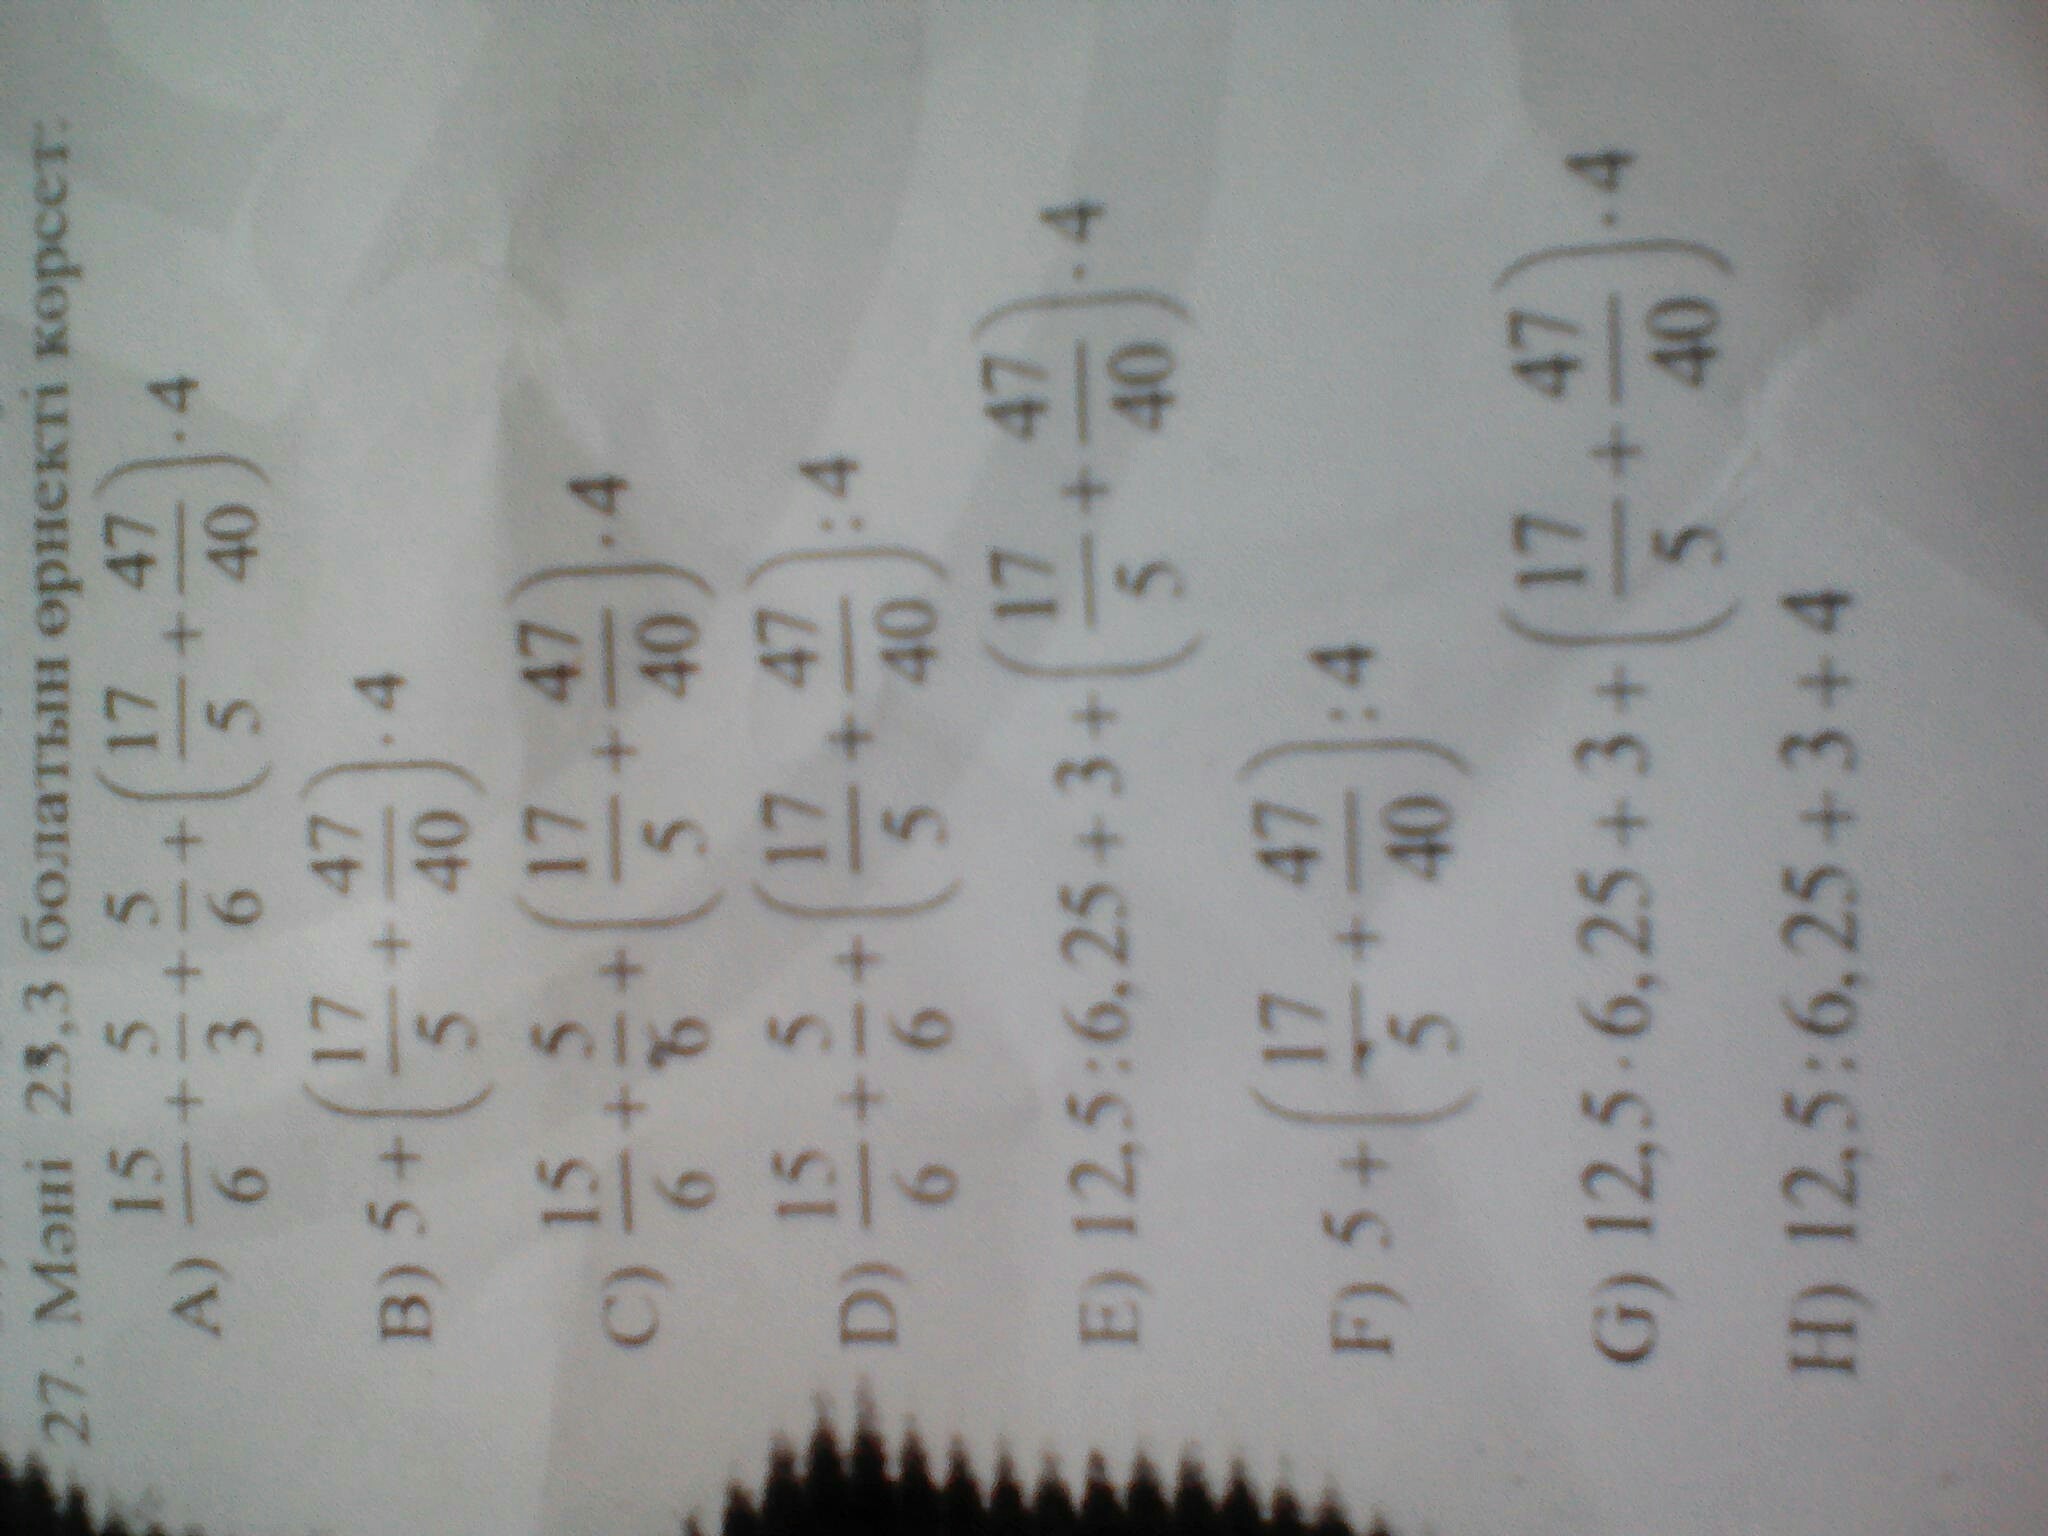 27. Мәні 23,3 болатын өрнекті көрсет.
A) 15/6 + 5/3 + 5/6 + (17/5 + 47/40) · 4
B) 5 + (17/5 + 47/40) · 4
C) 15/6 + 5/6 + (17/5 + 47/40) · 4
D) 15/6 + 5/6 + (17/5 + 47/40) : 4
E) 12,5 : 6,25 + 3 + (17/5 + 47/40) · 4
F) 5 + (17/5 + 47/40) : 4
G) 12,5 · 6,25 + 3 + (17/5 + 47/40) · 4
H) 12,5 : 6,25 + 3 + 4